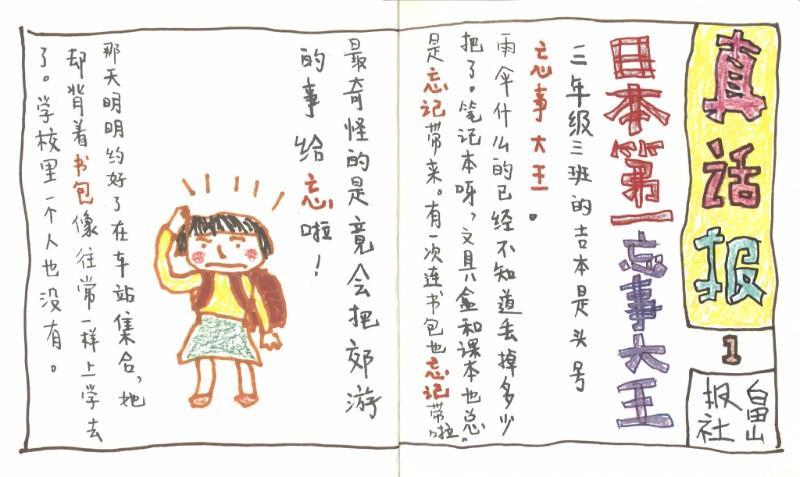 真话报
1
畠山
报社
日本第一忘事大王
三年级三班的吉本是头号
忘事大王。
雨伞什么的已经不知道丢掉多少
把了。笔记本呀，文具盒和课本也总
是忘记带来。有一次连书包也忘记带啦。
最奇怪的是竟会把郊游
的事给忘啦！
那天明明约好了在车站集合，她
却背着书包像往常一样上学去
了。学校里一个人也没有。